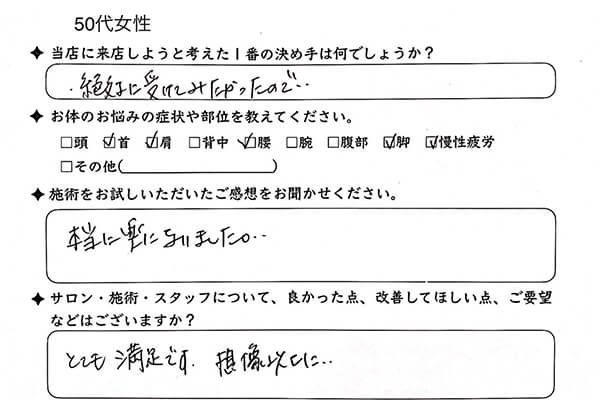 50代女性
✦ 当店に来店しようと考えた1番の決め手は何でしょうか？
・絶対に受けてみたかったので…
✦ お体のお悩みの症状や部位を教えてください。
□頭 ☑首 ☑肩 □背中 ☑腰 □腕 □腹部 ☑脚 ☑慢性疲労
□その他( )
✦ 施術をお試しいただいたご感想をお聞かせください。
本当に楽になりました。‥
✦ サロン・施術・スタッフについて、良かった点、改善してほしい点、ご要望
などはございますか？
とても 満足です. 想像以上に…